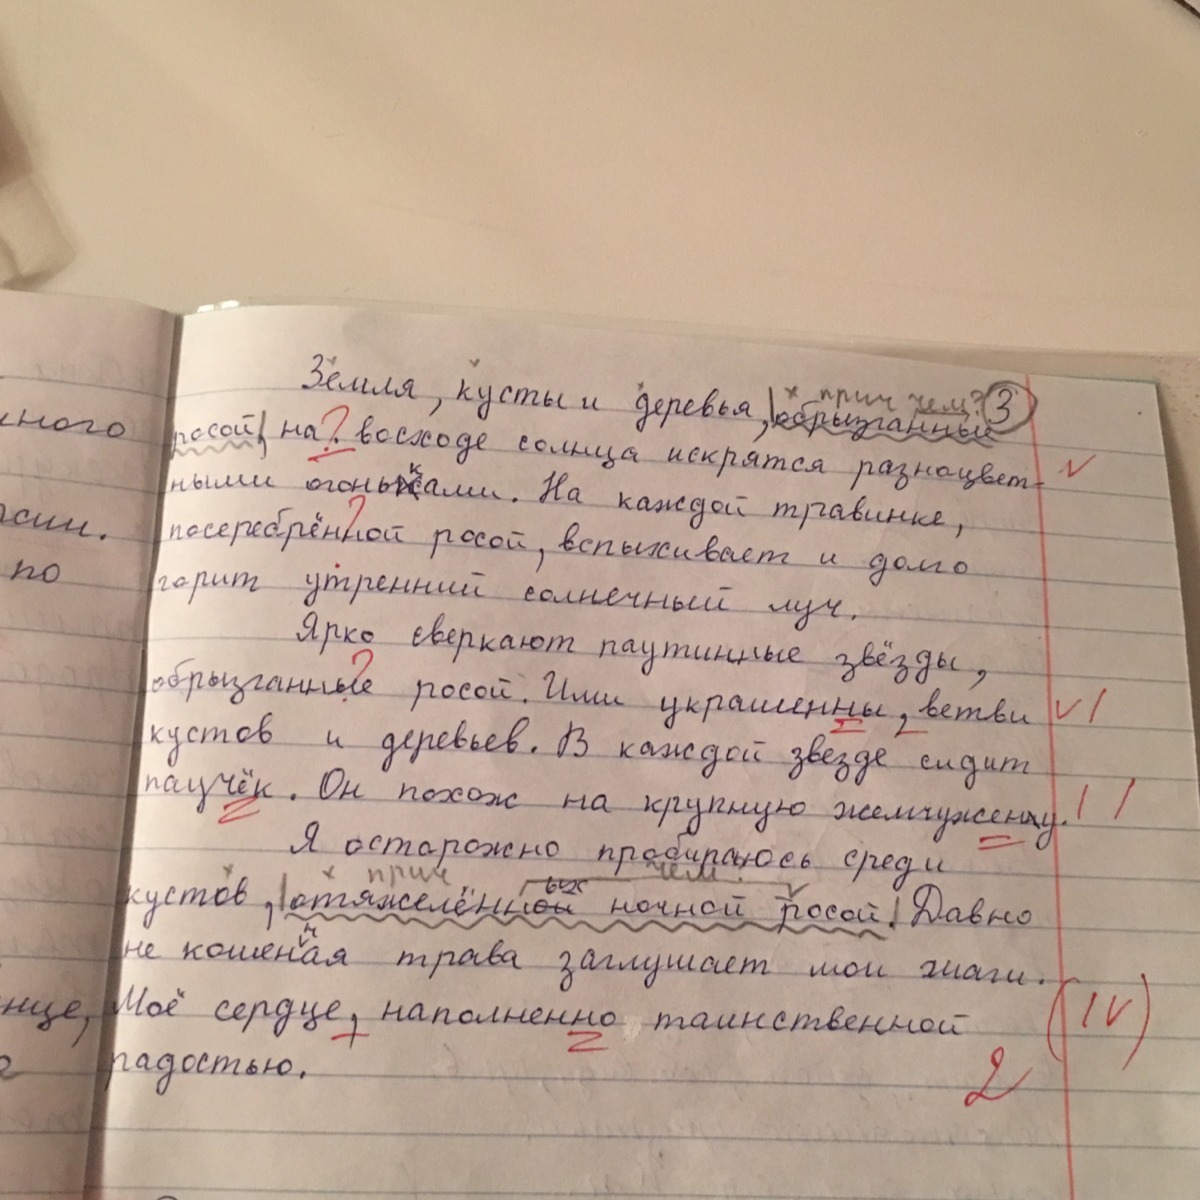 Земля, кусты и деревья, обрызганные
прич чем? 3
росой, на ? восходе солнца искрятся разноцвет-
ными огоньками. На каждой травинке,
посеребрённой росой, вспыхивает и долго
горит утренний солнечный луч.
Ярко сверкают паутинные звёзды,
обрызганные росой. Ими украшенны, ветви
кустов и деревьев. В каждой звезде сидит
паучёк. Он похож на крупную жемчуженцу.
Я осторожно пробираюсь среди
прич чем
кустов, отяжелённой вых ночной росой. Давно
не кошеная трава заглушает мои шаги.
Моё сердце, наполненно таинственной
радостью.
2
(IV)
ного
сии.
по
нце,